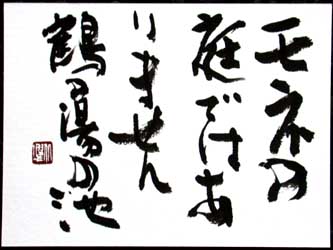 モネの
庭ではあ
りません
鶴の湯の池